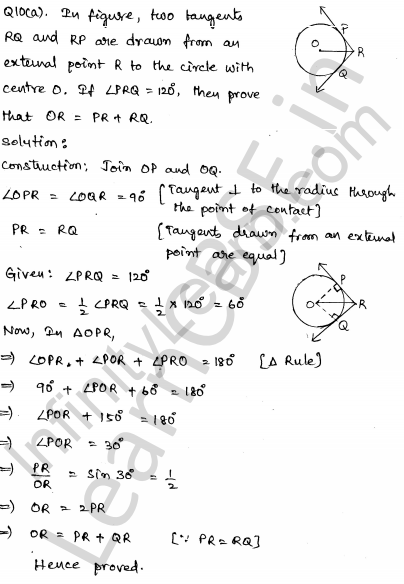 Q10(a). In figure, two tangents
RQ and RP are drawn from an
external point R to the circle with
centre O. If ∠PRQ = 120°, then prove
that OR = PR + RQ.
O P R Q
Solution:
Construction: Join OP and OQ.
∠OPR = ∠OQR = 90° [Tangent ⊥ to the radius through
the point of contact]
PR = RQ [Tangents drawn from an external
point are equal]
Given: ∠PRQ = 120°
∠PRO = 1/2 ∠PRQ = 1/2 × 120° = 60°
O P R Q
Now, In ΔOPR,
⇒ ∠OPR + ∠POR + ∠PRO = 180° [Δ Rule]
⇒ 90° + ∠POR + 60° = 180°
⇒ ∠POR + 150° = 180°
⇒ ∠POR = 30°
⇒ PR/OR = Sin 30° = 1/2
⇒ OR = 2PR
⇒ OR = PR + QR [∵ PR = RQ]
Hence proved.
InfinityLearn
LearnCBSE.in